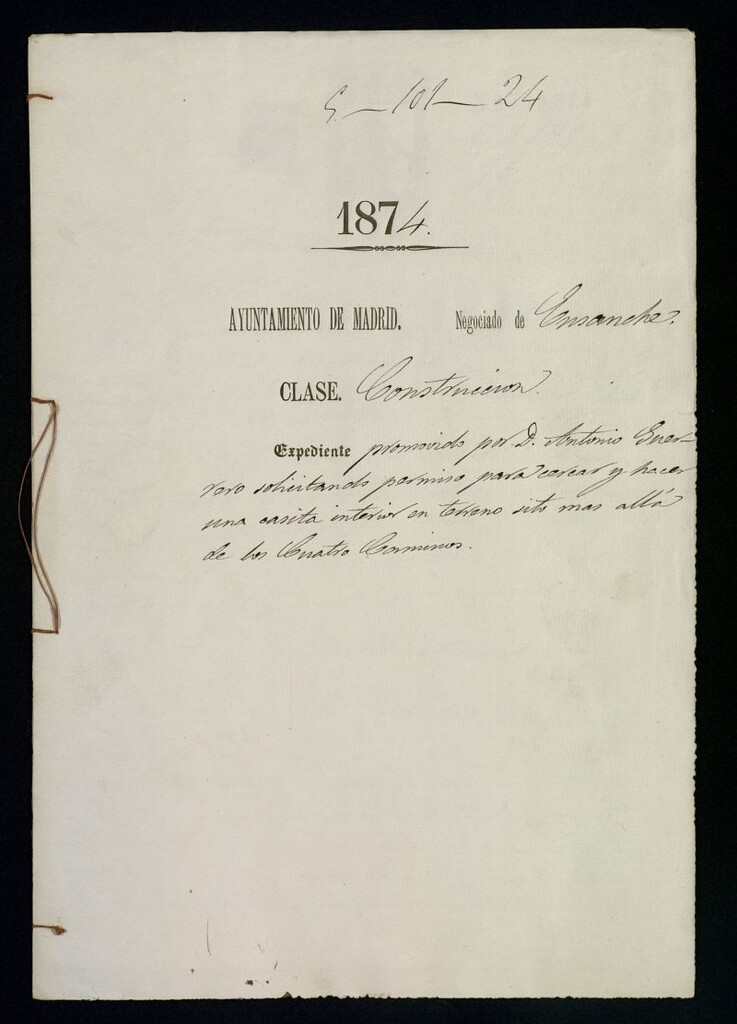 5-101-24
1874.
AYUNTAMIENTO DE MADRID. Negociado de Ensanche.
CLASE. Construccion.
Expediente promovido por D. Antonio Guer-
rero solicitando permiso para cercar y hacer
una casita interior en terreno sito mas allá
de los Cuatro Caminos.